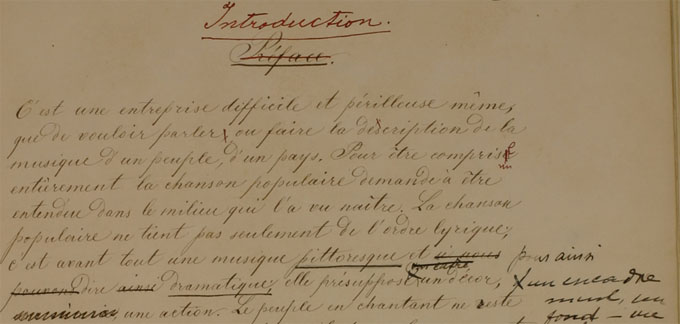 Introduction.
Préface.
C'est une entreprise difficile et périlleuse même,
que de vouloir parler, ou faire la description de la
musique d'un peuple, d'un pays. Pour être compris
entièrement la chanson populaire demande à être
entendue dans le milieu qui l'a vu naître. La chanson
populaire ne tient pas seulement de l'ordre lyrique;
c'est avant tout une musique pittoresque et si nous pour ainsi
pouvons dire ainsi dramatique, elle présuppose un décor, un encadre
une action. Le peuple en chantant ne reste ment, un
fond — une